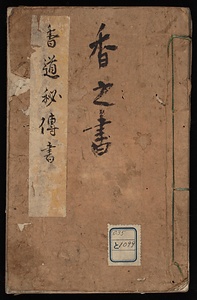 香之書
香道秘傳書